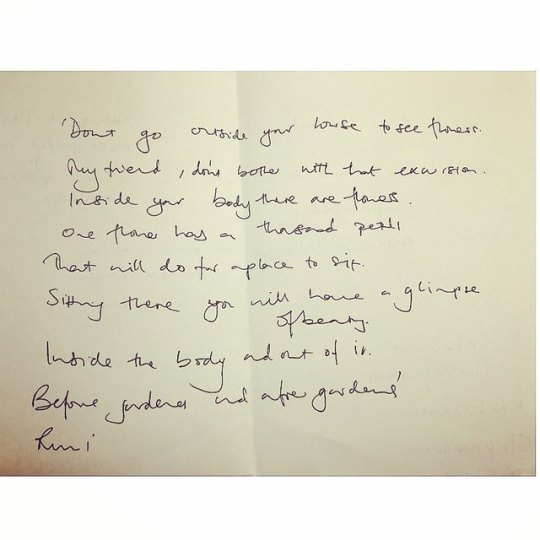 'Don't go outside your house to see flowers.
My friend, don't bother with that excursion.
Inside your body there are flowers.
One flower has a thousand petals
That will do for a place to sit.
Sitting there you will have a glimpse
of beauty.
Inside the body and out of it.
Before gardens and after gardens'
Rumi